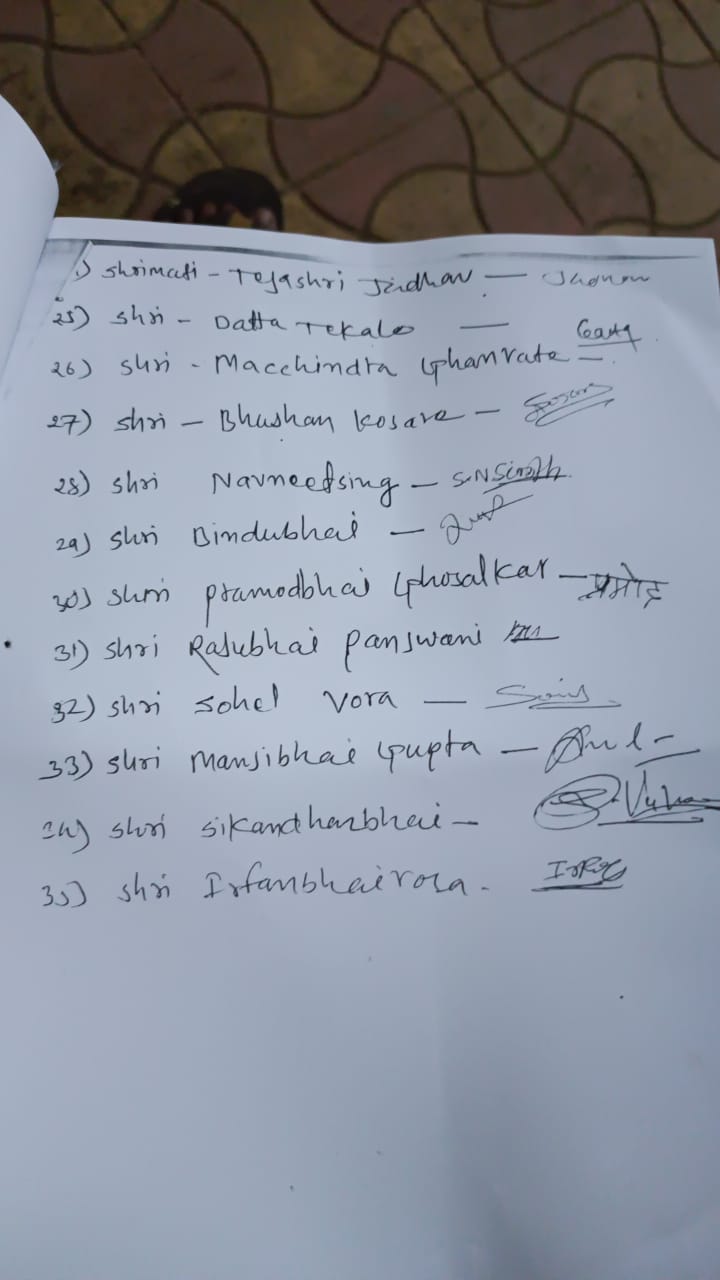 ) Shrimati - Tejashri Jadhav —
25) Shri - Datta Tekale —
26) Shri - Macchindra Ghanvate —
27) Shri — Bhushan Kosare —
28) Shri Navneetsing — S.N Singh
29) Shri Bindubhai —
30) Shri Pramodbhai Ghosalkar — प्रमोद
31) Shri Rajubhai Panjwani
32) Shri Sohel Vora —
33) Shri Mansibhai Gupta —
34) Shri Sikandharbhai —
35) Shri Irfanbhai Vora -